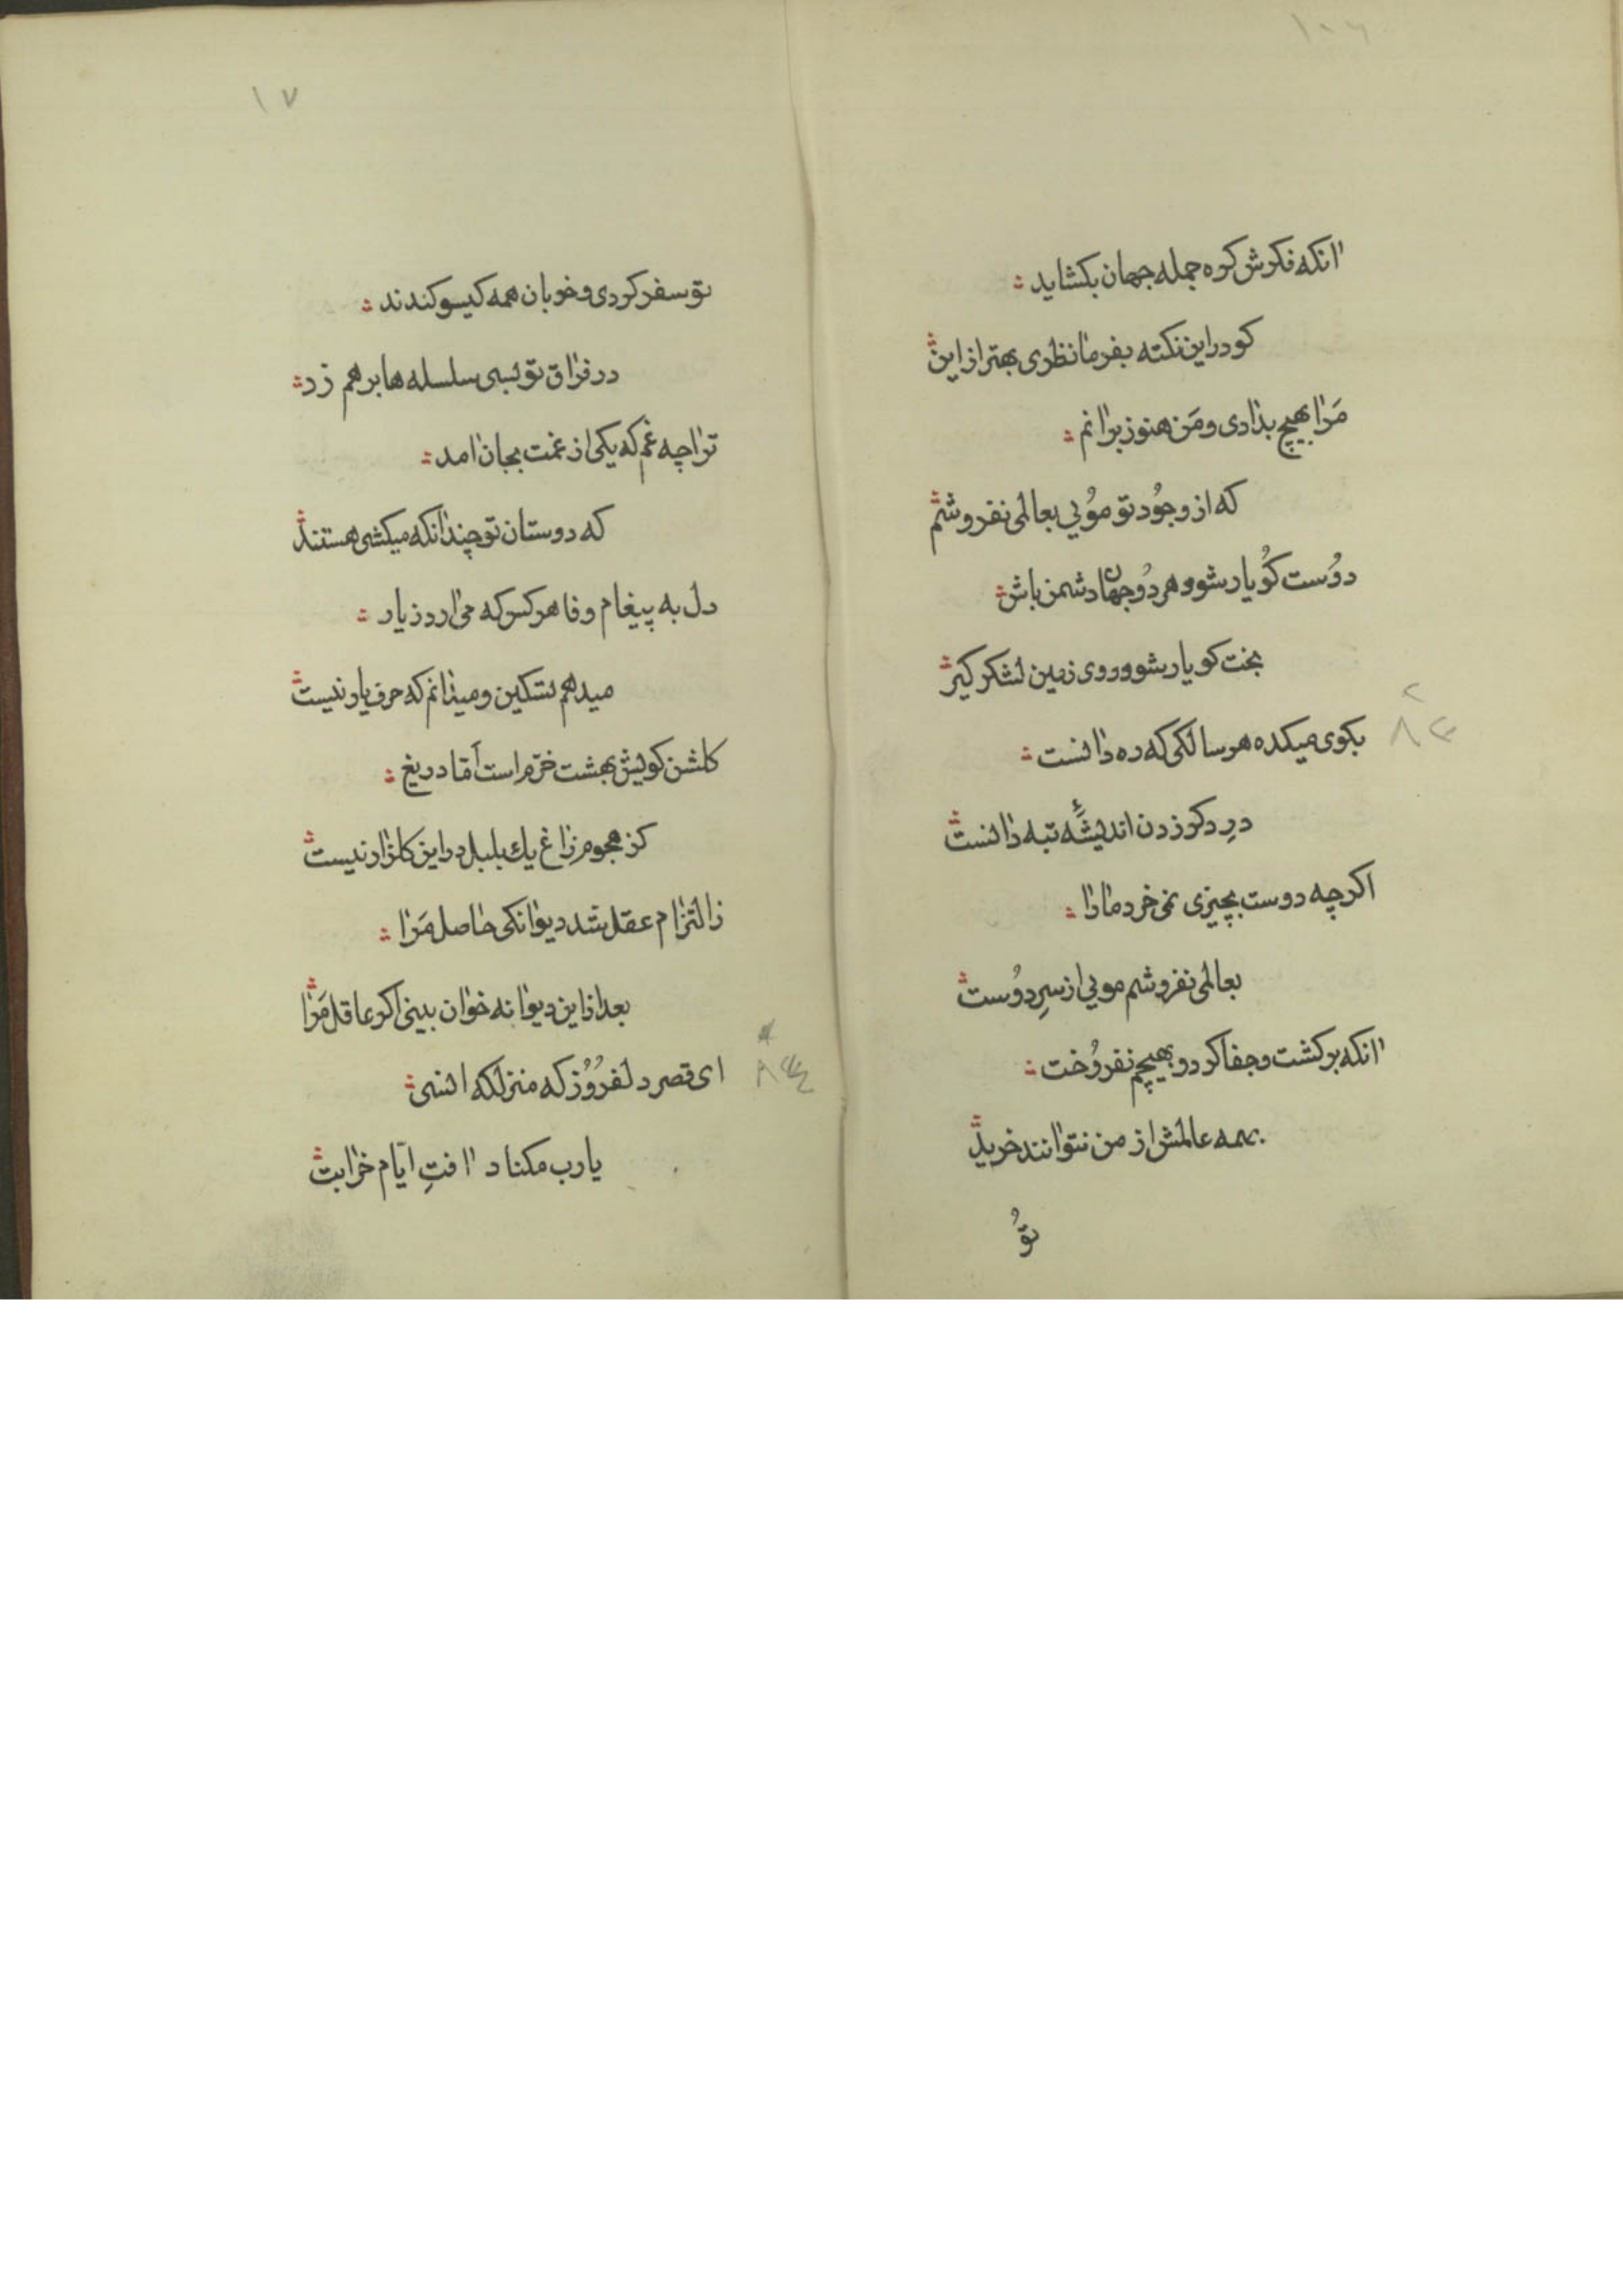 ١٠٦
انكه فكرش كره جمله جهان بكشايد
كو در اين نكته بفرما نظرى بهتر از اين
مَرا بهيچ بدادى و مَن هنوز برانم
كه از وجُود تو مُويي بعالمى نفروشم
دوُست كُو يار شو و هر دُو جهان دشمن باش
بخت كو يار شو و روى زمين لشكر كير
بكوى ميكده هر سالكى كه ره دانست
٨٣
درِ دكر زدن انديشهٔ تبه دانست
اكرچه دوست بچيزى نمى خرد ما را
بعالمى نفروشم مويي از سرِ دوُست
انكه بركشت و جفا كرد و بهيچم نفروُخت
بهمه عالمش از من نتوانند خريد
توُ
١٧
تو سفر كردى و خوبان همه كيسو كندند
در فراق تو بسى سلسله ها بر هم زد
ترا چه غم كه يكى از غمت بجان امد
كه دوستان تو چندانكه ميكشى هستند
دل به پيغام وفا هر كس كه مى ارد ز يار
ميدهم تسكين و ميدانم كه حرف يار نيست
كلشن كويش بهشت خرّم است اَمّا دريغ
كز هجوم زاغ يك بلبل در اين كلزار نيست
ز التزام عقل شد ديوانكى حاصل مَرا
بعد از اين ديوانه خوان بينى اكر عاقل مَرا
اى قصر دلفرُوُز كه منزلكه انسى
٨٤
يارب مكناد افتِ ايّام خرابت